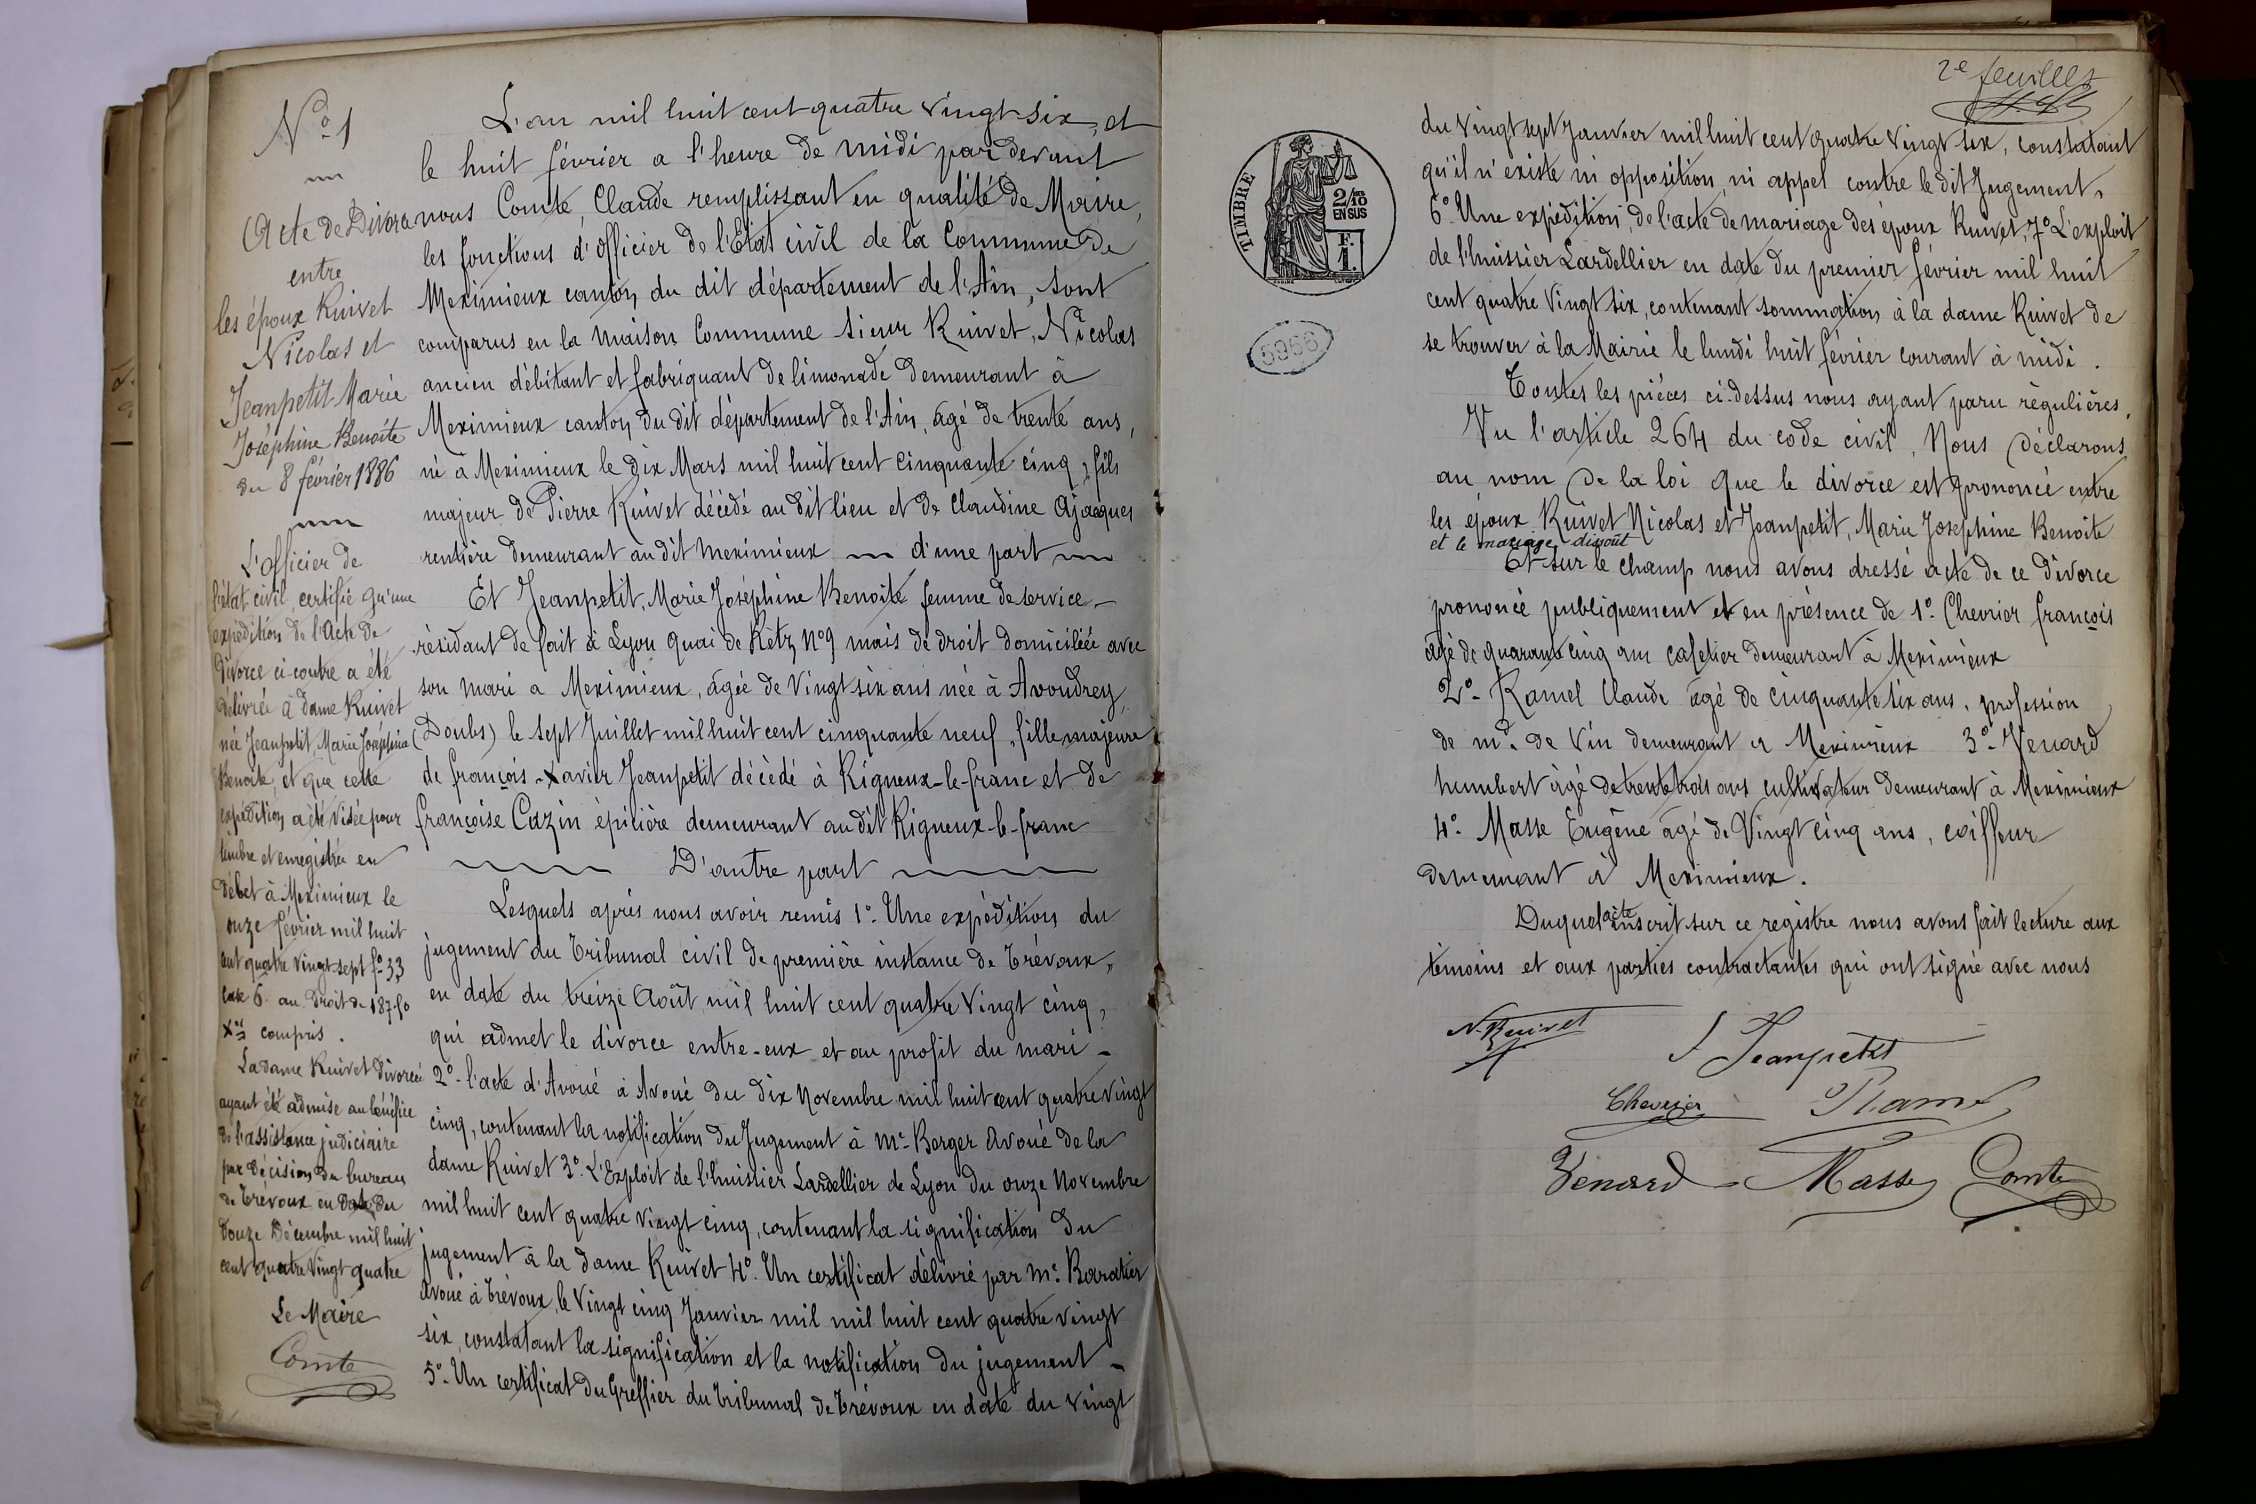 N° 1
Acte de Divorce
entre
les époux Ruivet
Nicolas et
Jeanpetit Marie
Joséphine Benoite
du 8 février 1886
L'officier de
l'état civil, certifie qu'une
expédition de l'Acte de
divorce ci-contre a été
délivrée à dame Ruivet
née Jeanpetit Marie Joséphine
Benoite, et que cette
expédition a été visée pour
timbre et enregistrée en
débet à Meximieux le
onze février mil huit
cent quatre vingt sept f° 33
case 6 au droit de 187.50
Xes compris.
La dame Ruivet divorcée
ayant été admise au bénéfice
de l'assistance judiciaire
par décision du bureau
de Trevoux en date du
douze Décembre mil huit
cent quatre vingt quatre
Le Maire
Comte
L'an mil huit cent quatre vingt six, et
le huit février a l'heure de midi par devant
nous Comte, Claude remplissant en qualité de Maire,
les fonctions d'officier de l'Etat civil de la Commune de
Meximieux canton du dit département de l'Ain, sont
comparus en la maison Commune sieur Ruivet, Nicolas
ancien débitant et fabriquant de limonade demeurant à
Meximieux canton du dit département de l'Ain, âgé de trente ans,
né à Meximieux le dix Mars mil huit cent cinquante cinq, fils
majeur de Pierre Ruivet décédé au dit lieu et de Claudine Ajacques
rentière demeurant au dit Meximieux d'une part
Et Jeanpetit, Marie Joséphine Benoite femme de service
résidant de fait à Lyon quai de Retz n° 9 mais de droit domiciliée avec
son mari a Meximieux, âgée de vingt six ans née à Avoudrey
(Doubs) le sept Juillet mil huit cent cinquante neuf, fille majeure
de françois-Xavier Jeanpetit décèdé à Rigneux-le-franc et de
françoise Cazin épicière demeurant au dit Rigneux-le-franc
D'autre part
Lesquels après nous avoir remis 1°. Une expédition du
jugement du Tribunal civil de première instance de Trévoux,
en date du treize Août mil huit cent quatre vingt cinq,
qui admet le divorce entre-eux et au profit du mari
2°- l'acte d'Avoué à Avoué du dix Novembre mil huit cent quatre vingt
cinq, contenant la notification du Jugement à Me Berger avoué de la
dame Ruivet 3°. L'Exploit de l'huissier Lardellier de Lyon du onze Novembre
mil huit cent quatre vingt cinq, contenant la signification du
jugement à la dame Ruivet 4°. Un certificat délivré par me. Baratier
avoué à Trévoux, le vingt cinq Janvier mil mil huit cent quatre vingt
six, constatant la signification et la notification du jugement
5°. Un certificat du Greffier du Tribunal de Trévoux en date du vingt
2e feuillet
TIMBRE
2/10 EN SUS
F.
1.
5966
du vingt sept Janvier mil huit cent quatre vingt six, constatant
qu'il n'existe ni opposition ni appel contre le dit Jugement,
6°. Une expédition de l'acte de mariage des époux Ruivet, 7° L'exploit
de l'huissier Lardellier en date du premier février mil huit
cent quatre vingt six, contenant sommation à la dame Ruivet de
se trouver à la Mairie le lundi huit février courant à midi.
Toutes les pièces ci-dessus nous ayant paru règulières,
Vu l'article 264 du code civil, Nous déclarons
au nom de la loi que le divorce est prononcé entre
les époux Ruivet Nicolas et Jeanpetit, Marie Josephine Benoite
et le mariage dissout
Et sur le champ nous avons dressé acte de ce divorce
prononcé publiquement et en présence de 1°. Chevrier françois
âgé de quarante cinq ans cafetier demeurant à Meximieux
2°- Ramel Claude âgé de cinquante six ans, profession
de md. de vin demeurant à Meximieux 3°- Venard
humbert âgé de trente trois ans cultivateur demeurant à Meximieux
4°- Masse Eugène âgé de vingt cinq ans, coiffeur
demeurant à Meximieux.
Duquel acte inscrit sur ce registre nous avons fait lecture aux
témoins et aux parties contractantes qui ont signé avec nous
N. Ruivet
J Jeanpetit
Chevrier Ramel
Venard Masse Comte